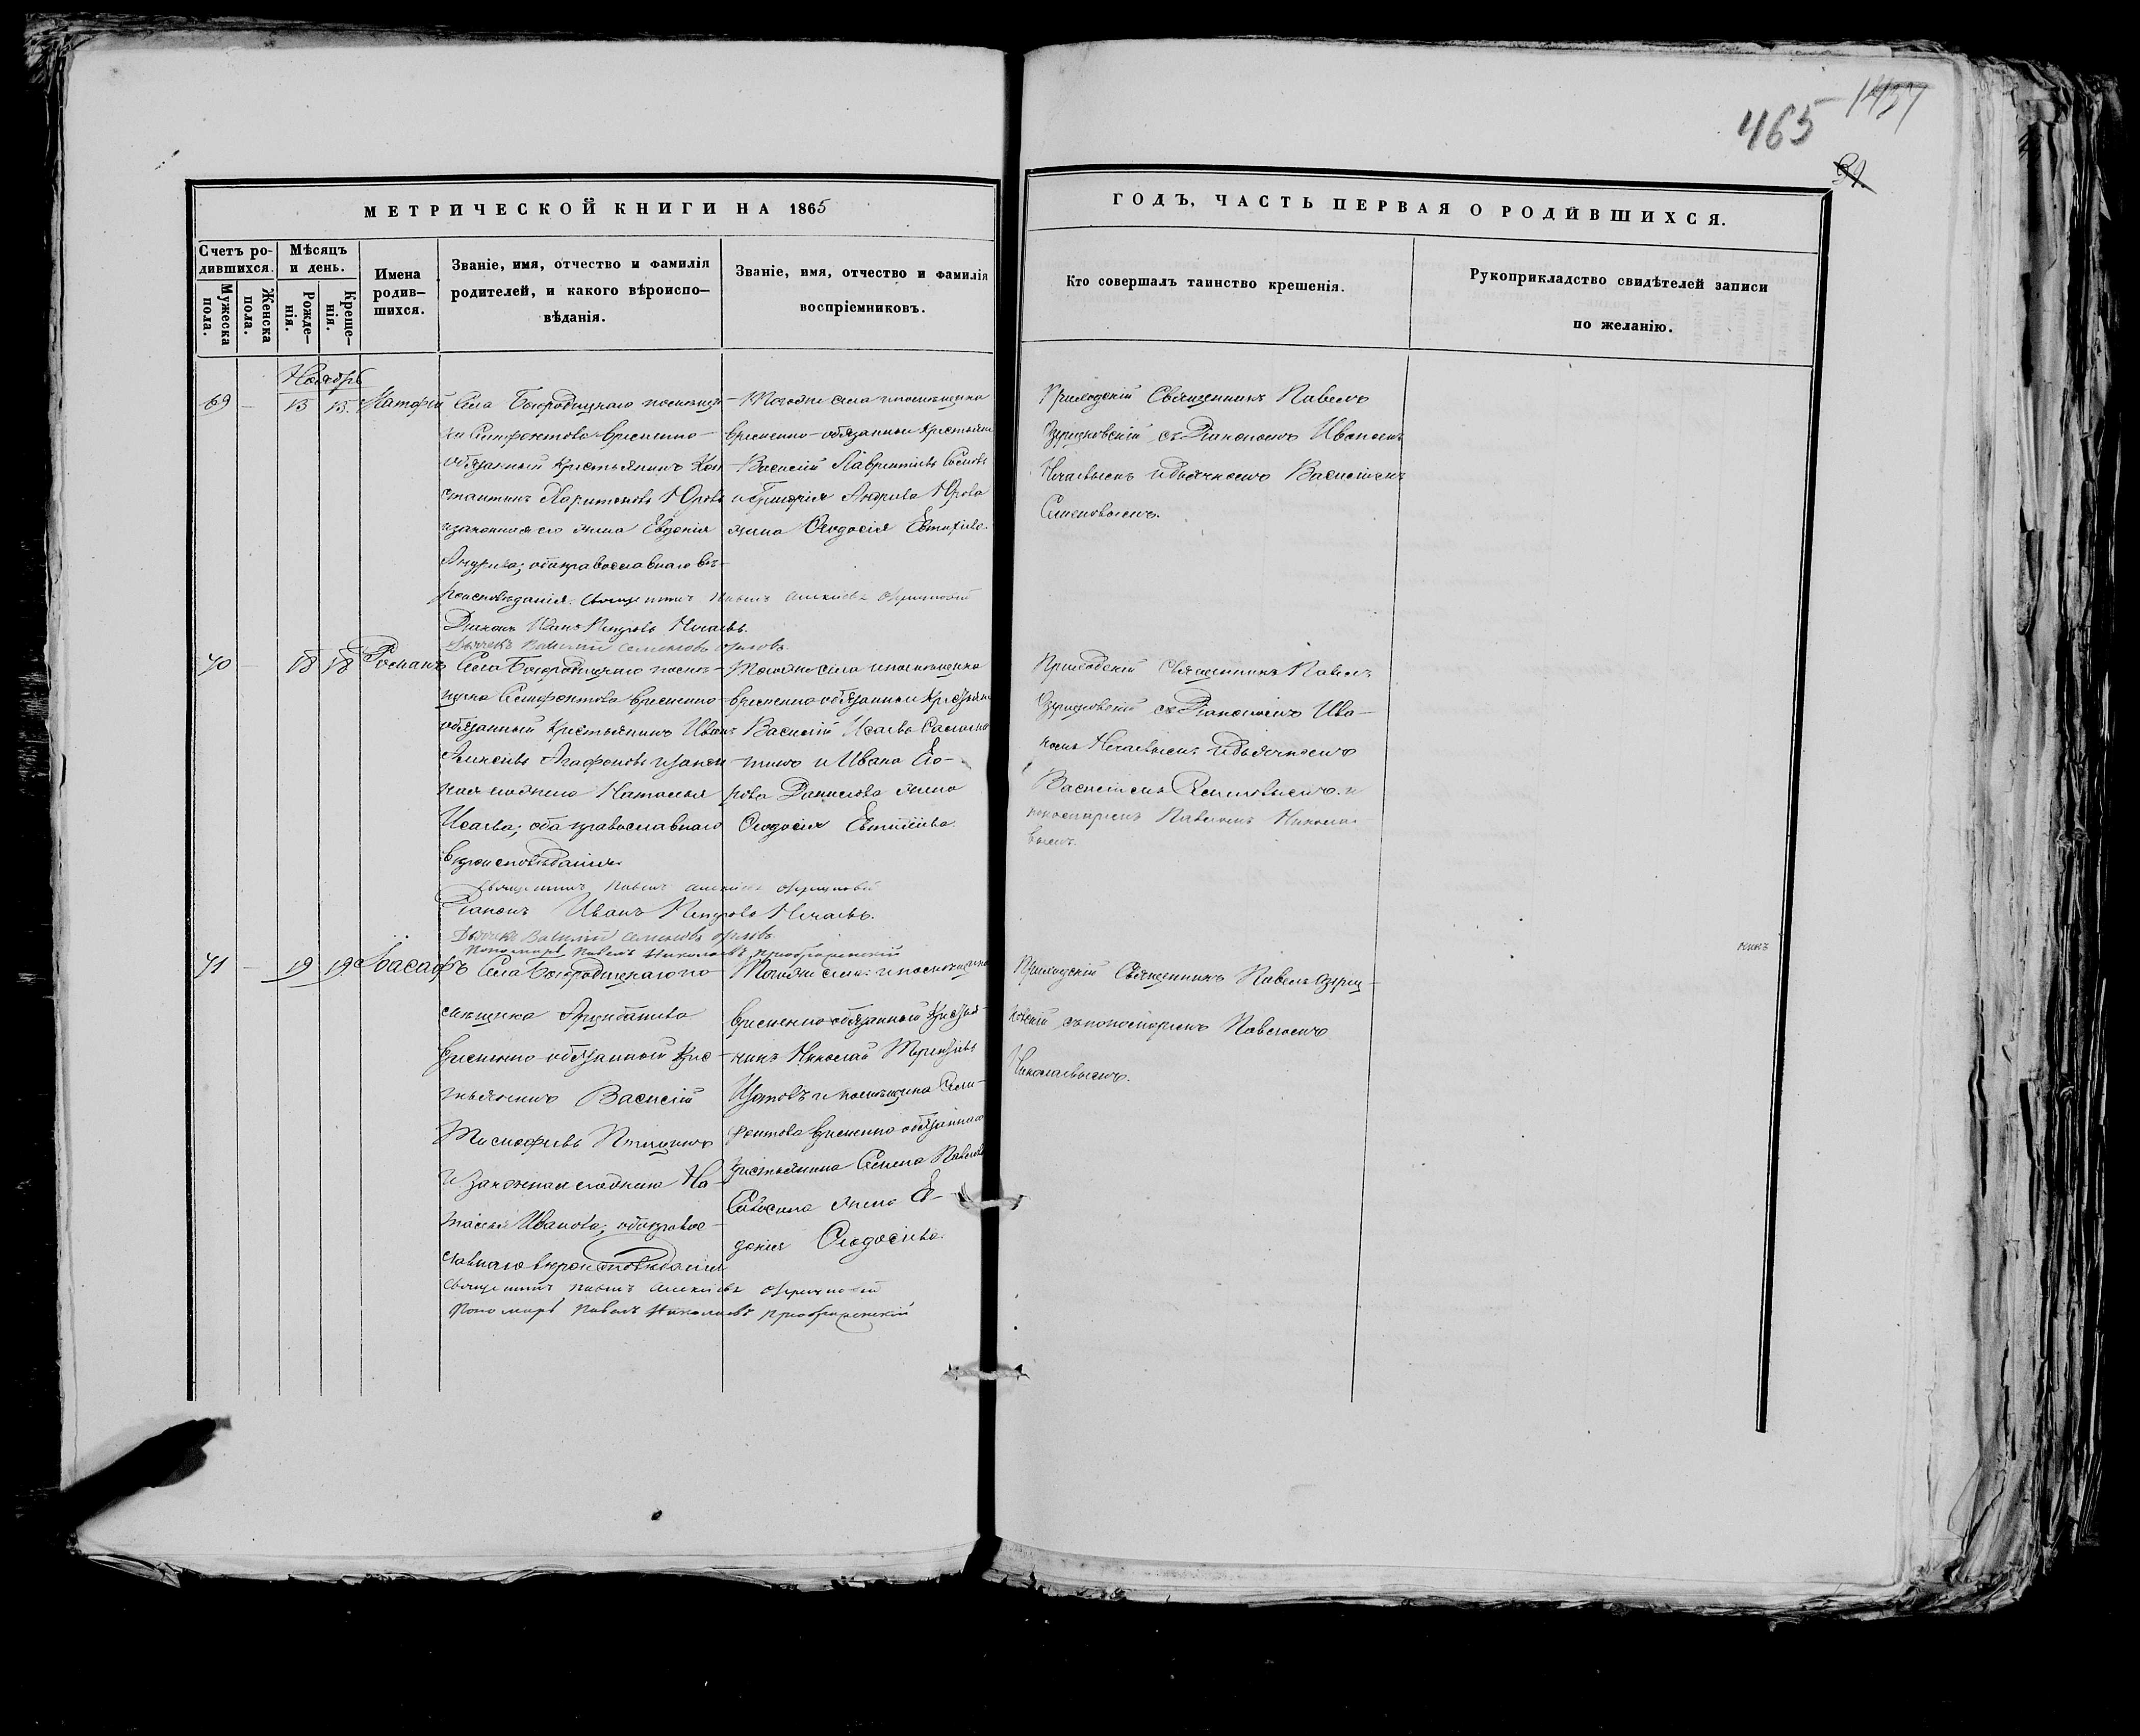 465
1437
91.
МЕТРИЧЕСКОЙ КНИГИ НА 1865
ГОДЪ, ЧАСТЬ ПЕРВАЯ О РОДИВШИХСЯ.
Счетъ ро-
дившихся.
Мужеска
пола.
Женска
пола.
Мѣсяцъ
и день.
Рожде-
нія.
Креще-
нія.
Имена
родив-
шихся.
Званіе, имя, отчество и фамилія
родителей, и какого вѣроиспо-
вѣданія.
Званіе, имя, отчество и фамилія
воспріемниковъ.
Кто совершалъ таинство крешенія.
Рукоприкладство свидѣтелей записи
по желанію.
Ноябрь
69 - 15 15. Матфей
Села Богородицкаго помѣщи-
ка временно-
обязанный крестьянинъ Кон
стантинъ Харитоновъ Юровъ
и законная его жена Евдокія
Андреева; оба православнаго вѣ-
роисповѣданія. Священникъ Павелъ Алексѣевъ
Діаконъ Иванъ Петровъ Нечаевъ.
Дьячекъ Василій Семеновъ Орловъ.
Тогоже села и помѣщика
временно-обязанные крестьяне
Василій Лаврентіевъ
и Григорія Андреева Юрова
жена Ѳеодосія Евтихіева.
Приходскій Священникъ Павелъ
съ Діакономъ Иваномъ
Нечаевымъ и дьячкомъ Василіемъ
Семеновымъ.
70 - 18 18 Романъ
Села Богородицкаго помѣ-
щика временно-
обязанный крестьянинъ Иванъ
Алексѣевъ Агафоновъ и закон
ная жена Наталья
Исаева; оба православнаго
вѣроисповѣданія.
Священникъ Павелъ Алексѣевъ
Діаконъ Иванъ Петровъ Нечаевъ.
Дьячекъ Василій Семеновъ Орловъ.
Пономарь Павелъ Николаевъ Преображенскій
Тогоже села и помѣщика
временно обязанные крестьяне
Василій Исаевъ
и Ивана Его-
рова Данилова жена
Ѳеодосія Евтихіева.
Приходскій Священникъ Павелъ
съ Діакономъ Ива-
номъ Нечаевымъ и дьячкомъ
Василіемъ Семеновымъ. и
пономаремъ Павломъ Николае-
вымъ.
71 - 19 19 Іоасафъ
Села Богородицкаго по-
мѣщика
временно-обязанный кре-
стьянинъ Василій
Птицынъ
и законная его жена На-
талья Иванова; оба право-
славнаго вѣроисповѣданія
Священникъ Павелъ Алексѣевъ
Пономарь Павелъ Николаевъ Преображенскій
Тогоже села и помѣщика
временно-обязанный крестья-
нинъ Николай Терентьевъ
и помѣщика
временно обязаннаго
крестьянина Семена Павлова
жена Ев-
докія Ѳеодосіева.
Приходскій Священникъ Павелъ
съ пономаремъ Павломъ
Николаевымъ.